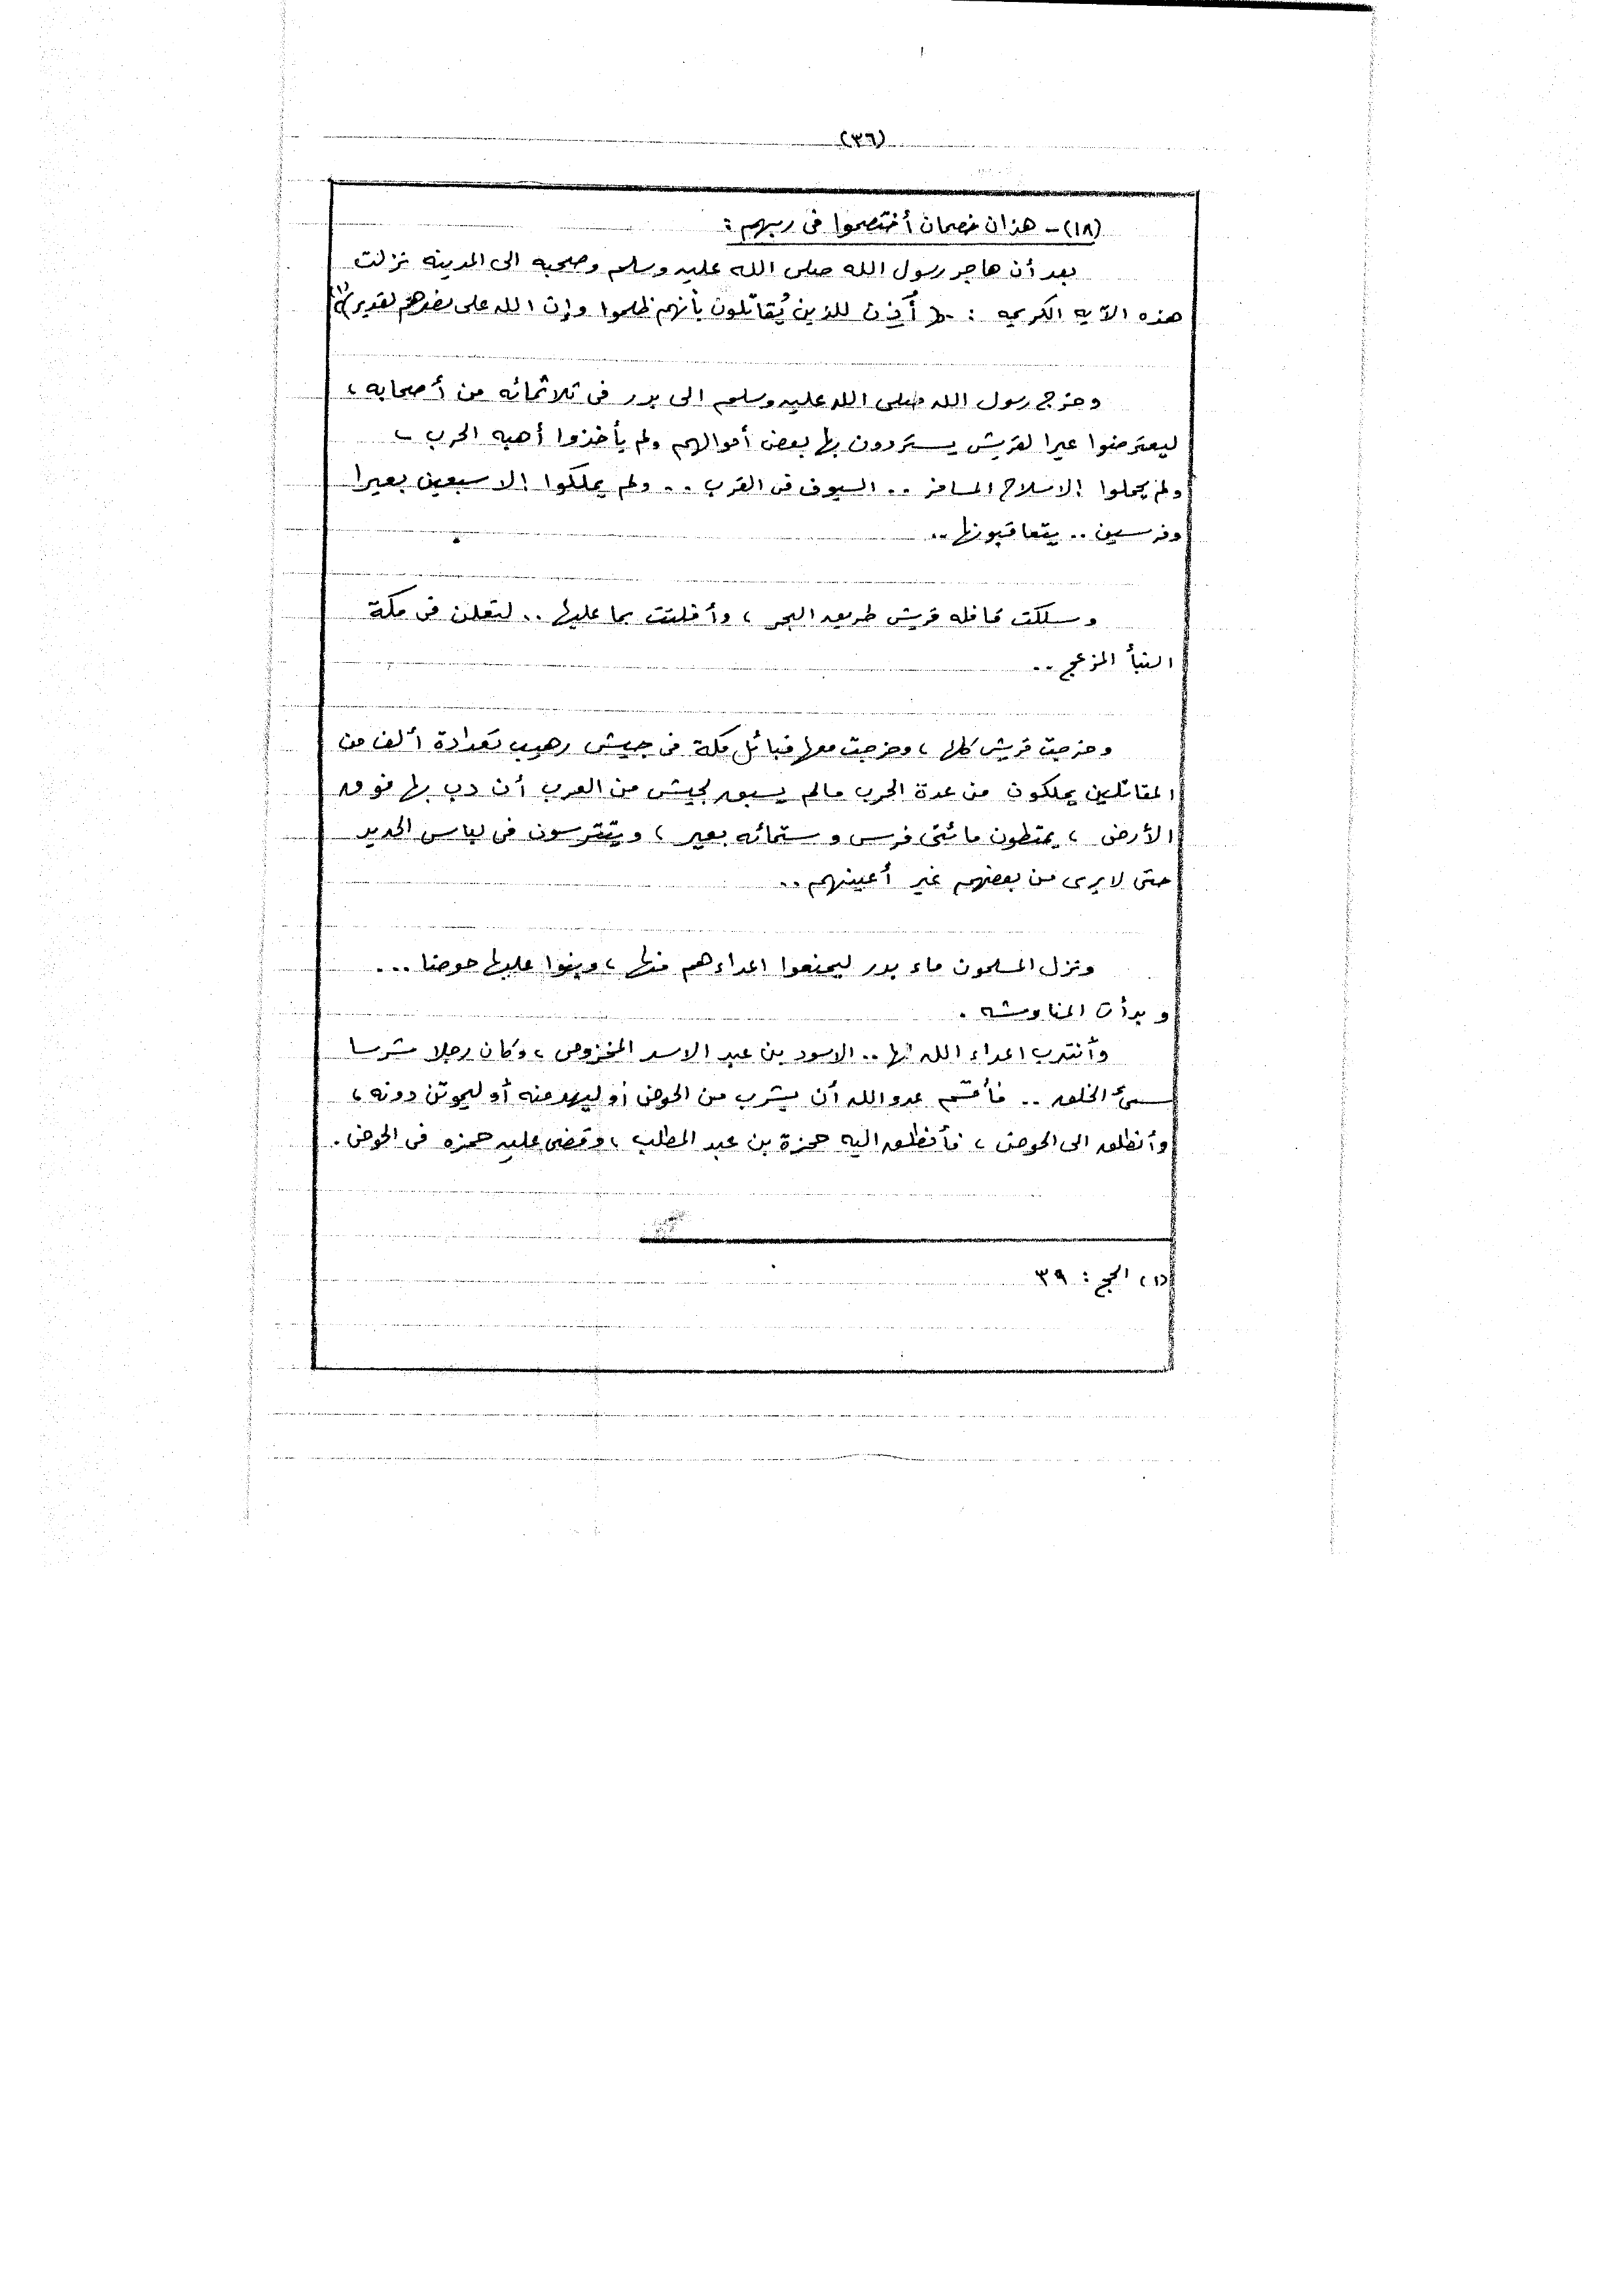 (٣٦)
(١٨) - هذان خصمان أختصموا فى ربهم :
بعد أن هاجر رسول الله صلى الله عليه وسلم وصحبه الى المدينه نزلت
هذه الآيه الكريمه : - ﴿ أُذِن للذين يُقاتَلون بأنهم ظلموا وإن الله على نصرهم لقدير ﴾ (١)
وخرج رسول الله صلى الله عليه وسلم الى بدر فى ثلاثمائه من أصحابه ،
ليعترضوا عيرا لقريش يستردون بها بعض أموالهم ولم يأخذوا أهبه الحرب ،
ولم يحملوا إلا سلاح المسافر .. السيوف فى القرب .. ولم يملكوا إلا سبعين بعيرا
وفرسين .. يتعاقبونها ..
وسلكت قافله قريش طريق البحر ، وأفلتت بما عليها .. لتعلن فى مكة
النبأ المزعج ..
وخرجت قريش كلها ، وخرجت معها قبائل مكة فى جيش رهيب تعدادة ألف من
المقاتلين يملكون من عدة الحرب مالم يسبق لجيش من العرب أن دب بها فوق
الأرض ، يمتطون مائتى فرس وستمائه بعير ، ويتترسون فى لباس الحديد
حتى لا يرى من بعضهم غير أعينهم ..
ونزل المسلمون ماء بدر ليمنعوا اعداءهم منها ، وبنوا عليها حوضا ...
وبدأت المناوشه .
وأنتدب اعداء الله لها .. الاسود بن عبد الاسد المخزومى ، وكان رجلا شرسا
سىء الخلق .. فأقسم عدو الله أن يشرب من الحوض أو ليهدمنه أو ليموتن دونه ،
وأنطلق الى الحوض ، فأنطلق اليه حمزة بن عبد المطلب ، وقضى عليه حمزه فى الحوض .
(١) الحج : ٣٩